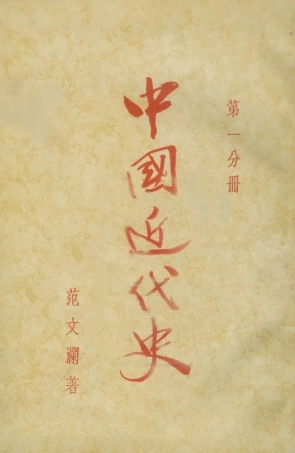 第一分冊
中國近代史
范文瀾著